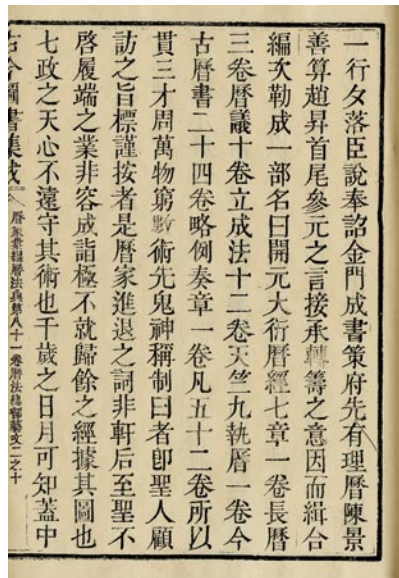 一行夕落臣說奉詔金門成書策府先有理曆陳景
善算趙昇首尾參元之言接承轉籌之意因而緝合
編次勒成一部名曰開元大衍曆經七章一卷長曆
三卷曆議十卷立成法十二卷天竺九執曆一卷今
古曆書二十四卷略例奏章一卷凡五十二卷所以
貫三才周萬物窮數術先鬼神稱制曰者卽聖人顧
訪之旨標謹按者是曆家進退之詞非軒后至聖不
啓履端之業非容成詣極不就歸餘之經據其圖也
七政之天心不遠守其術也千歲之日月可知蓋中
古今圖書集成 曆象彙編曆法典第八十一卷曆法總部藝文二之十